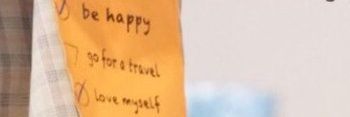 be happy
go for a travel
love myself